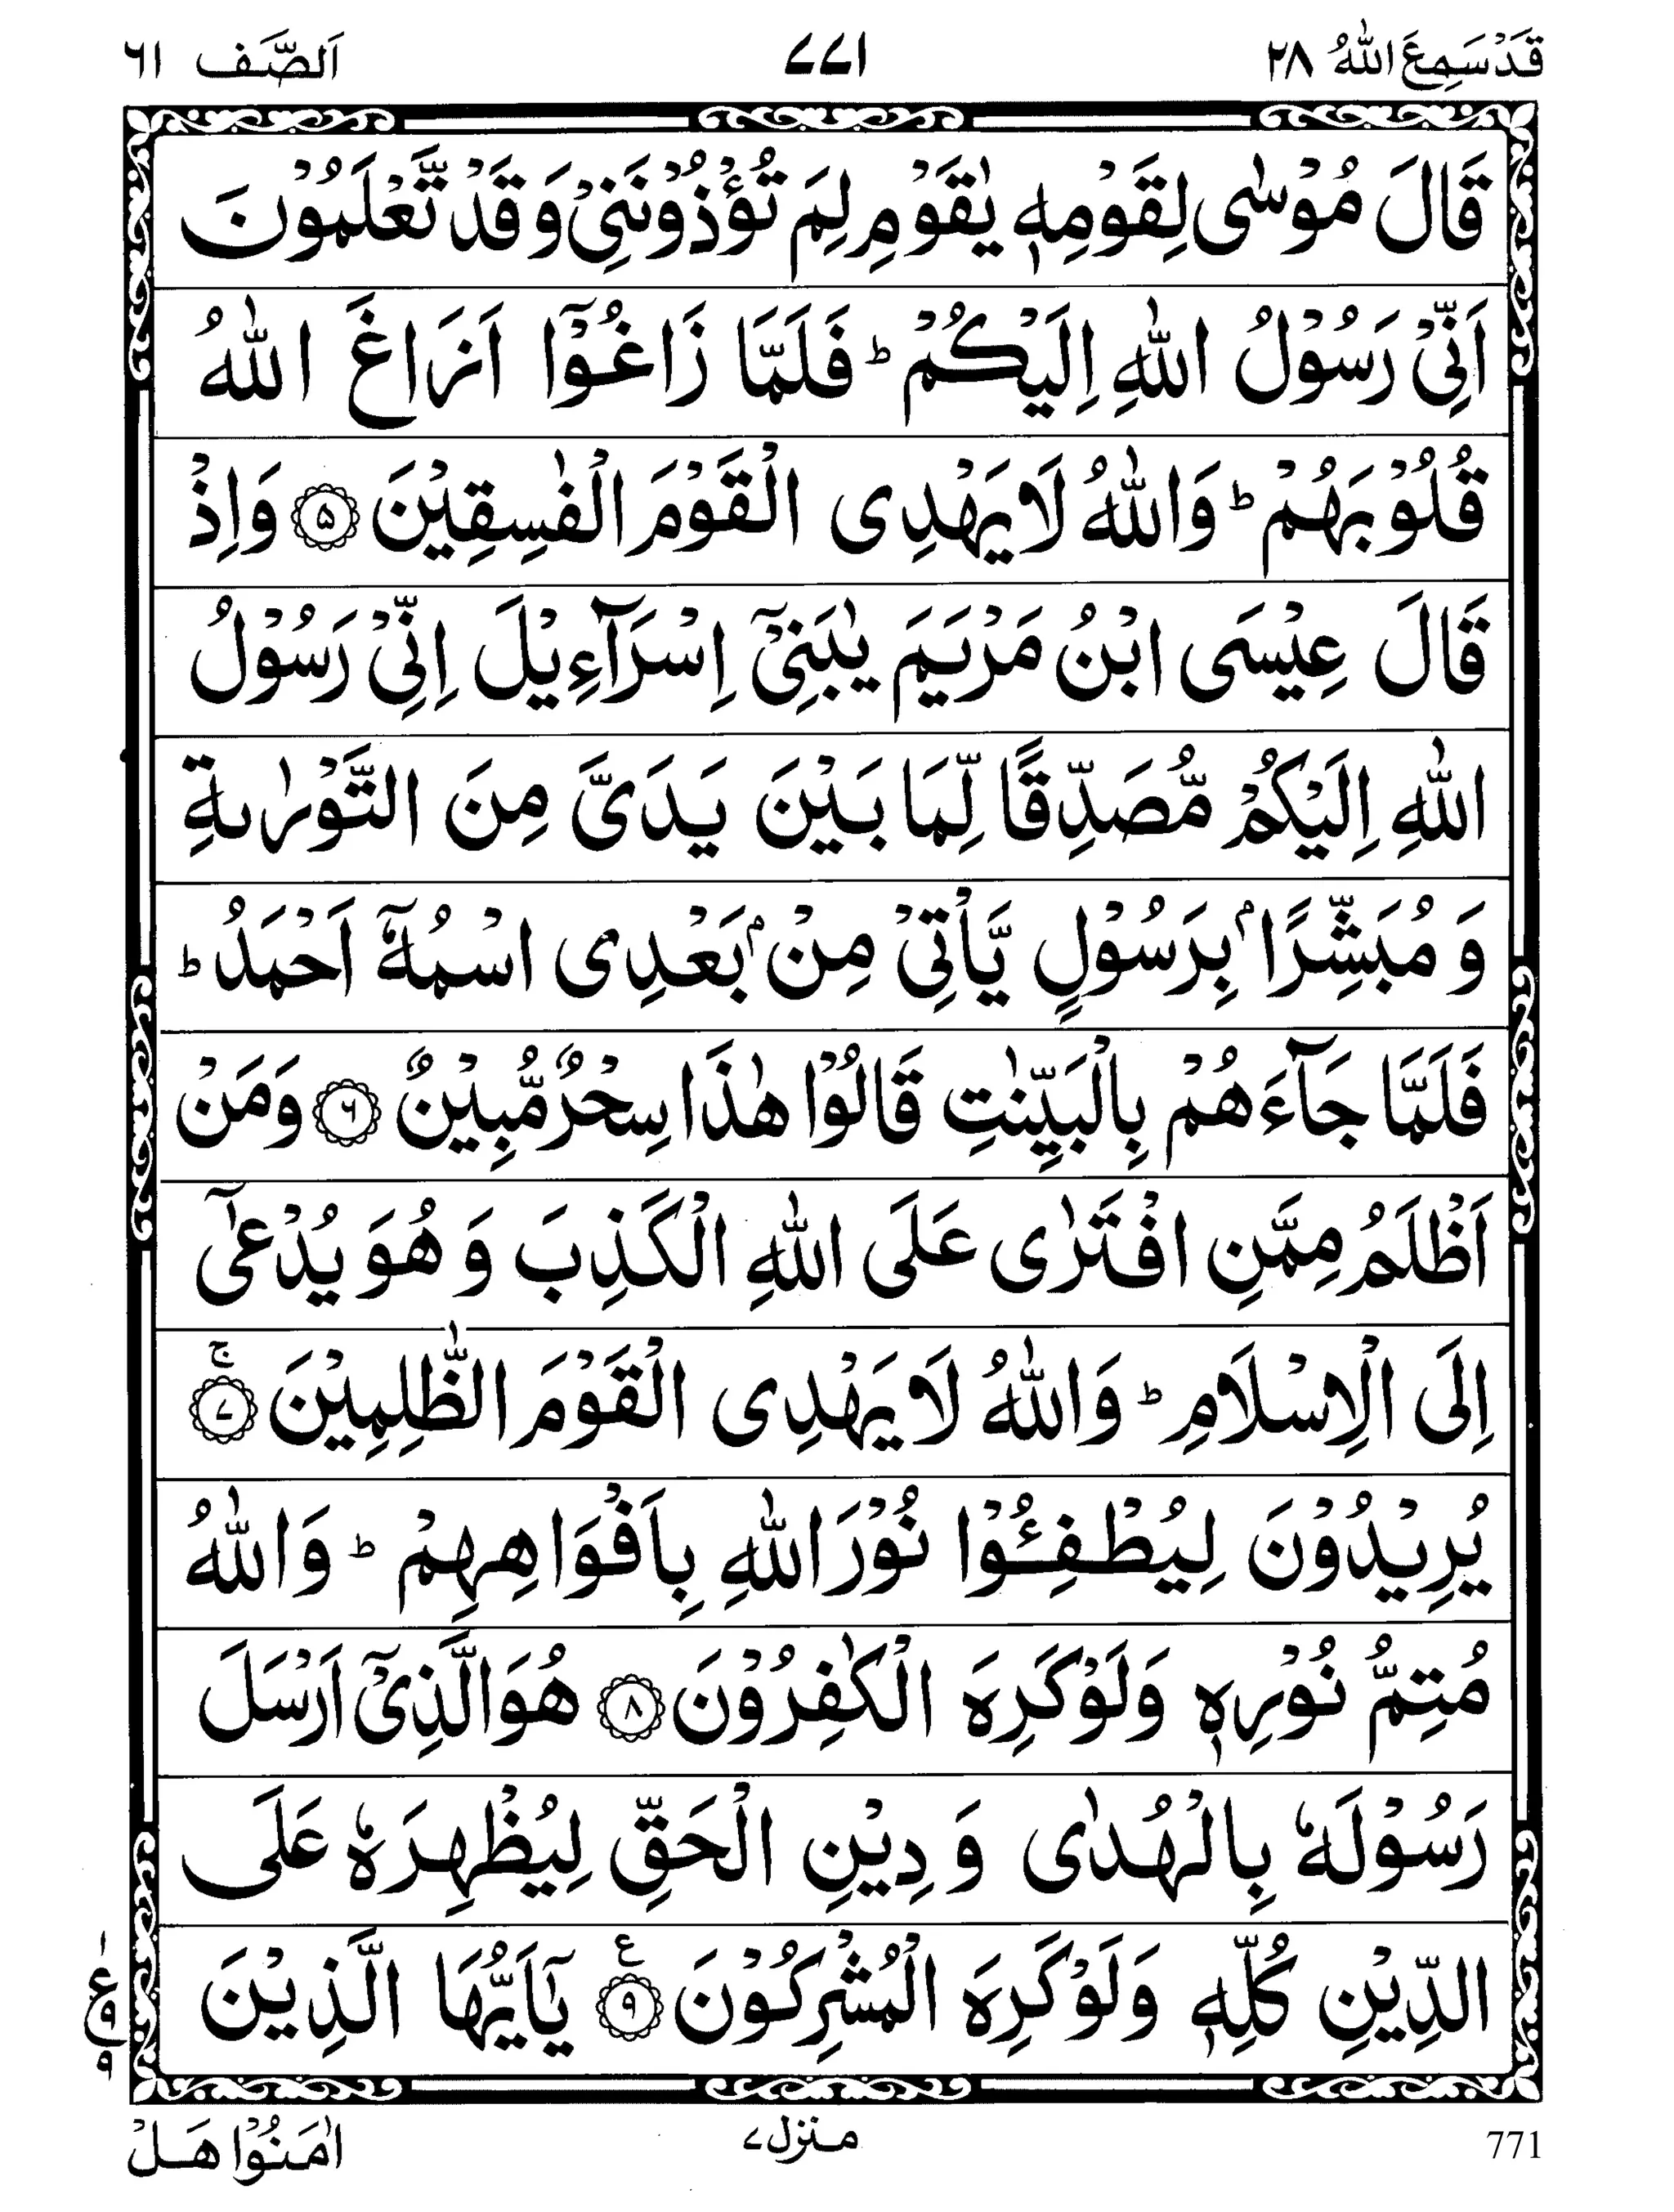 قَدْ سَمِعَ اللّٰهُ ٢٨
٧٧١
اَلصَّف ٦١
قَالَ مُوْسٰى لِقَوْمِهٖ يٰقَوْمِ لِمَ تُؤْذُوْنَنِيْ وَ قَدْ تَّعْلَمُوْنَ
اَنِّيْ رَسُوْلُ اللّٰهِ اِلَيْكُمْ ؕ فَلَمَّا زَاغُوْۤا اَزَاغَ اللّٰهُ
قُلُوْبَهُمْ ؕ وَاللّٰهُ لَا يَهْدِى الْقَوْمَ الْفٰسِقِيْنَ ۝۵ وَاِذْ
قَالَ عِيْسَى ابْنُ مَرْيَمَ يٰبَنِيْۤ اِسْرَآءِيْلَ اِنِّيْ رَسُوْلُ
اللّٰهِ اِلَيْكُمْ مُّصَدِّقًا لِّمَا بَيْنَ يَدَيَّ مِنَ التَّوْرٰىةِ
وَ مُبَشِّرًۢا بِرَسُوْلٍ يَّاْتِيْ مِنْۢ بَعْدِى اسْمُهٗۤ اَحْمَدُ ؕ
فَلَمَّا جَآءَهُمْ بِالْبَيِّنٰتِ قَالُوْا هٰذَا سِحْرٌ مُّبِيْنٌ ۝۶ وَمَنْ
اَظْلَمُ مِمَّنِ افْتَرٰى عَلَى اللّٰهِ الْكَذِبَ وَ هُوَ يُدْعٰۤى
اِلَى الْاِسْلَامِ ؕ وَاللّٰهُ لَا يَهْدِى الْقَوْمَ الظّٰلِمِيْنَ ۝۷ۚ
يُرِيْدُوْنَ لِيُطْفِـُٔوْا نُوْرَ اللّٰهِ بِاَفْوَاهِهِمْ ؕ وَاللّٰهُ
مُتِمُّ نُوْرِهٖ وَلَوْ كَرِهَ الْكٰفِرُوْنَ ۝۸ هُوَ الَّذِيْۤ اَرْسَلَ
رَسُوْلَهٗ بِالْهُدٰى وَ دِيْنِ الْحَقِّ لِيُظْهِرَهٗ عَلَى
الدِّيْنِ كُلِّهٖ وَلَوْ كَرِهَ الْمُشْرِكُوْنَ ۝۹ ع يٰۤاَيُّهَا الَّذِيْنَ
١ ع ٩ ٩
771
منزل ٧
اٰمَنُوْا هَلْ